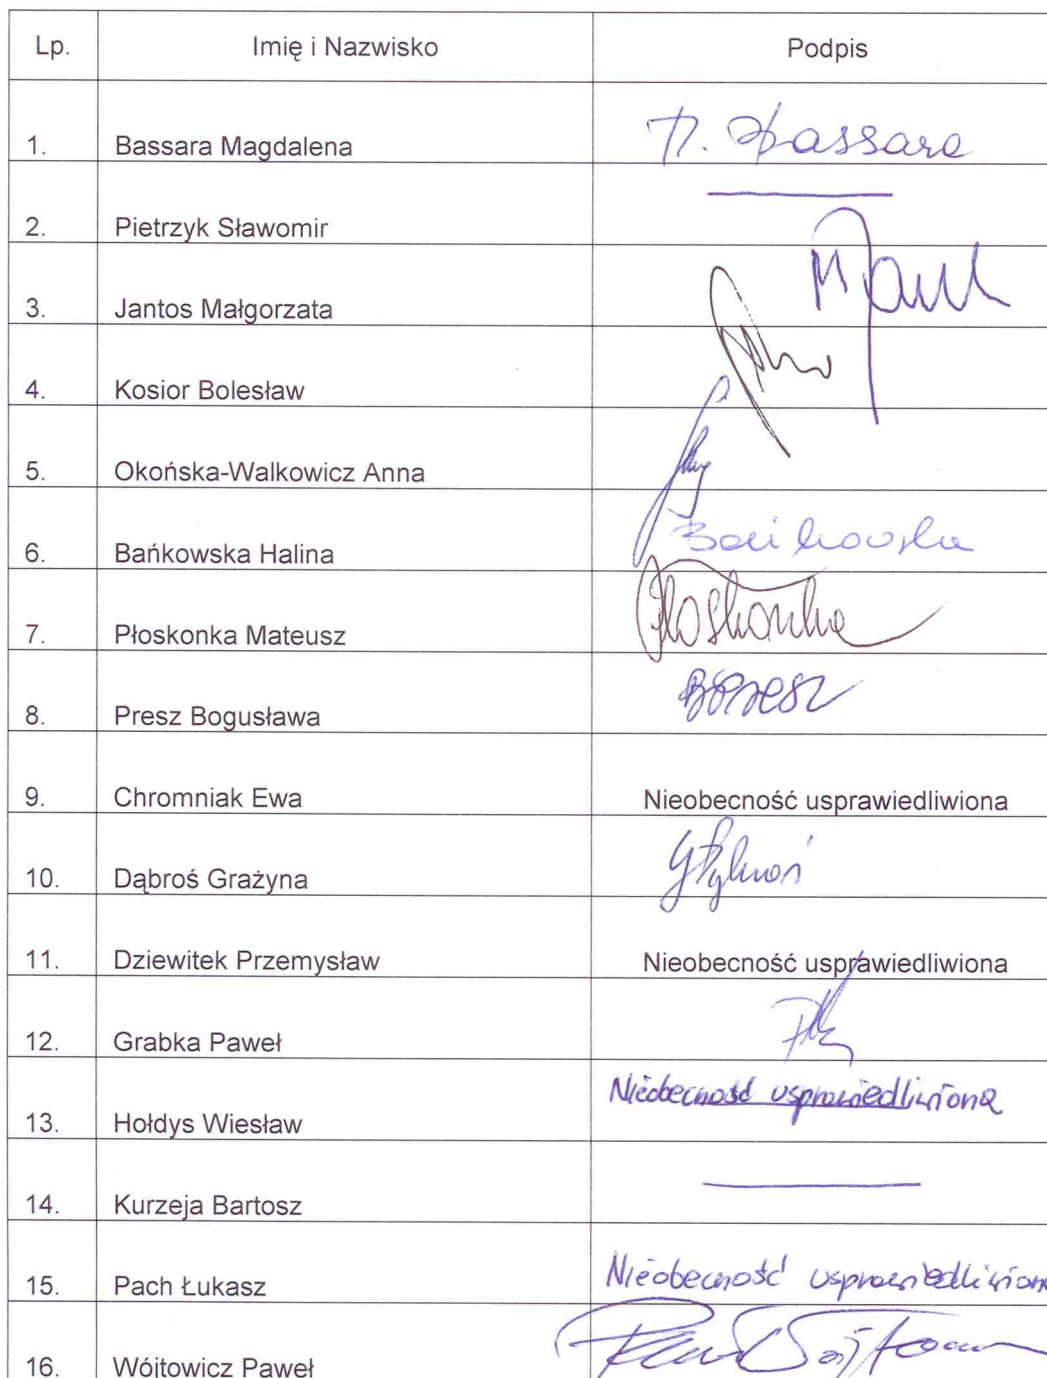 Lp. Imię i Nazwisko Podpis
1. Bassara Magdalena M. Bassara
2. Pietrzyk Sławomir
3. Jantos Małgorzata
4. Kosior Bolesław
5. Okońska-Walkowicz Anna
6. Bańkowska Halina Bańkowska
7. Płoskonka Mateusz Płoskonka
8. Presz Bogusława BPresz
9. Chromniak Ewa Nieobecność usprawiedliwiona
10. Dąbroś Grażyna
11. Dziewitek Przemysław Nieobecność usprawiedliwiona
12. Grabka Paweł
13. Hołdys Wiesław Nieobecność usprawiedliwiona
14. Kurzeja Bartosz
15. Pach Łukasz Nieobecność usprawiedliwiona
16. Wójtowicz Paweł